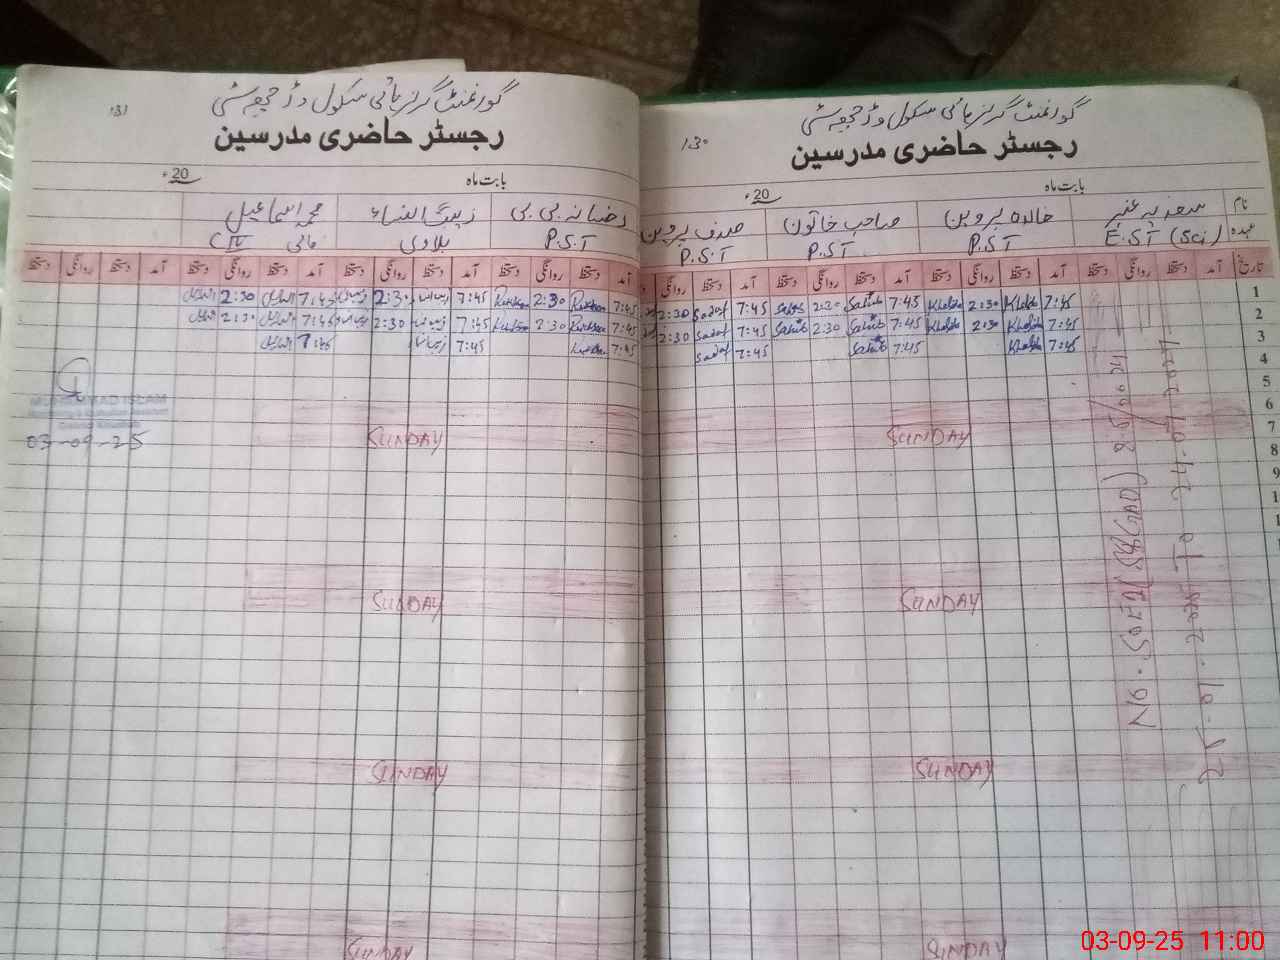 گورنمنٹ گرلز ہائی سکول وڈ جھوسٹی
رجسٹر حاضری مدرسین
1.30
بابت ماہ
20ء
نام
سعدیہ عنبر
خالدہ پروین
صاحب خاتون
صدف پروین
عہدہ
E.S.T (Sci)
P.S.T
P.S.T
P.S.T
تاریخ آمد دستخط روانگی دستخط آمد دستخط روانگی دستخط آمد دستخط روانگی دستخط آمد دستخط روانگی
1 7:45 Khalida 2:30 Khalida 7:45 Sahib 2:30 Sahib 7:45 Sadaf 2:30
2 7:45 Khalida 2:30 Khalida 7:45 Sahib 2:30 Sahib 7:45 Sadaf 2:30
3 7:45 Khalida 7:45 Sahib 7:45 Sadaf
4
5
6
7 SUNDAY
8
9
SUNDAY
SUNDAY
SUNDAY
25-01-2025 To 24-01-2027
گورنمنٹ گرلز ہائی سکول وڈ جھوسٹی
رجسٹر حاضری مدرسین
131
بابت ماہ
20ء
رضیانہ بی بی
زیب النساء
محمد اسماعیل
P.S.T
بلاوی
مالی
آمد دستخط روانگی دستخط آمد دستخط روانگی دستخط آمد دستخط روانگی دستخط آمد دستخط روانگی دستخط
7:45 2:30 7:45 2:30 7:45 2:30
7:45 2:30 7:45 2:30 7:45 2:30
7:45 7:45 7:45
MUHAMMAD ISLAM
03-09-25
SUNDAY
SUNDAY
SUNDAY
SUNDAY
03-09-25 11:00